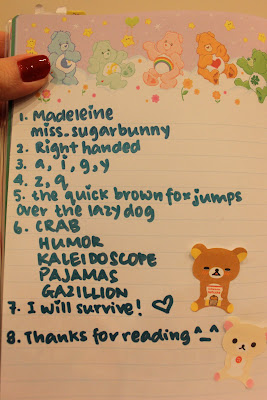 1. Madeleine
miss-sugarbunny
2. Right handed
3. a, i, g, y
4. z, q
5. the quick brown fox jumps
over the lazy dog
6. CRAB
HUMOR
KALEIDOSCOPE
PAJAMAS
GAZILLION
7. I will survive! ♡
8. Thanks for reading ^_^